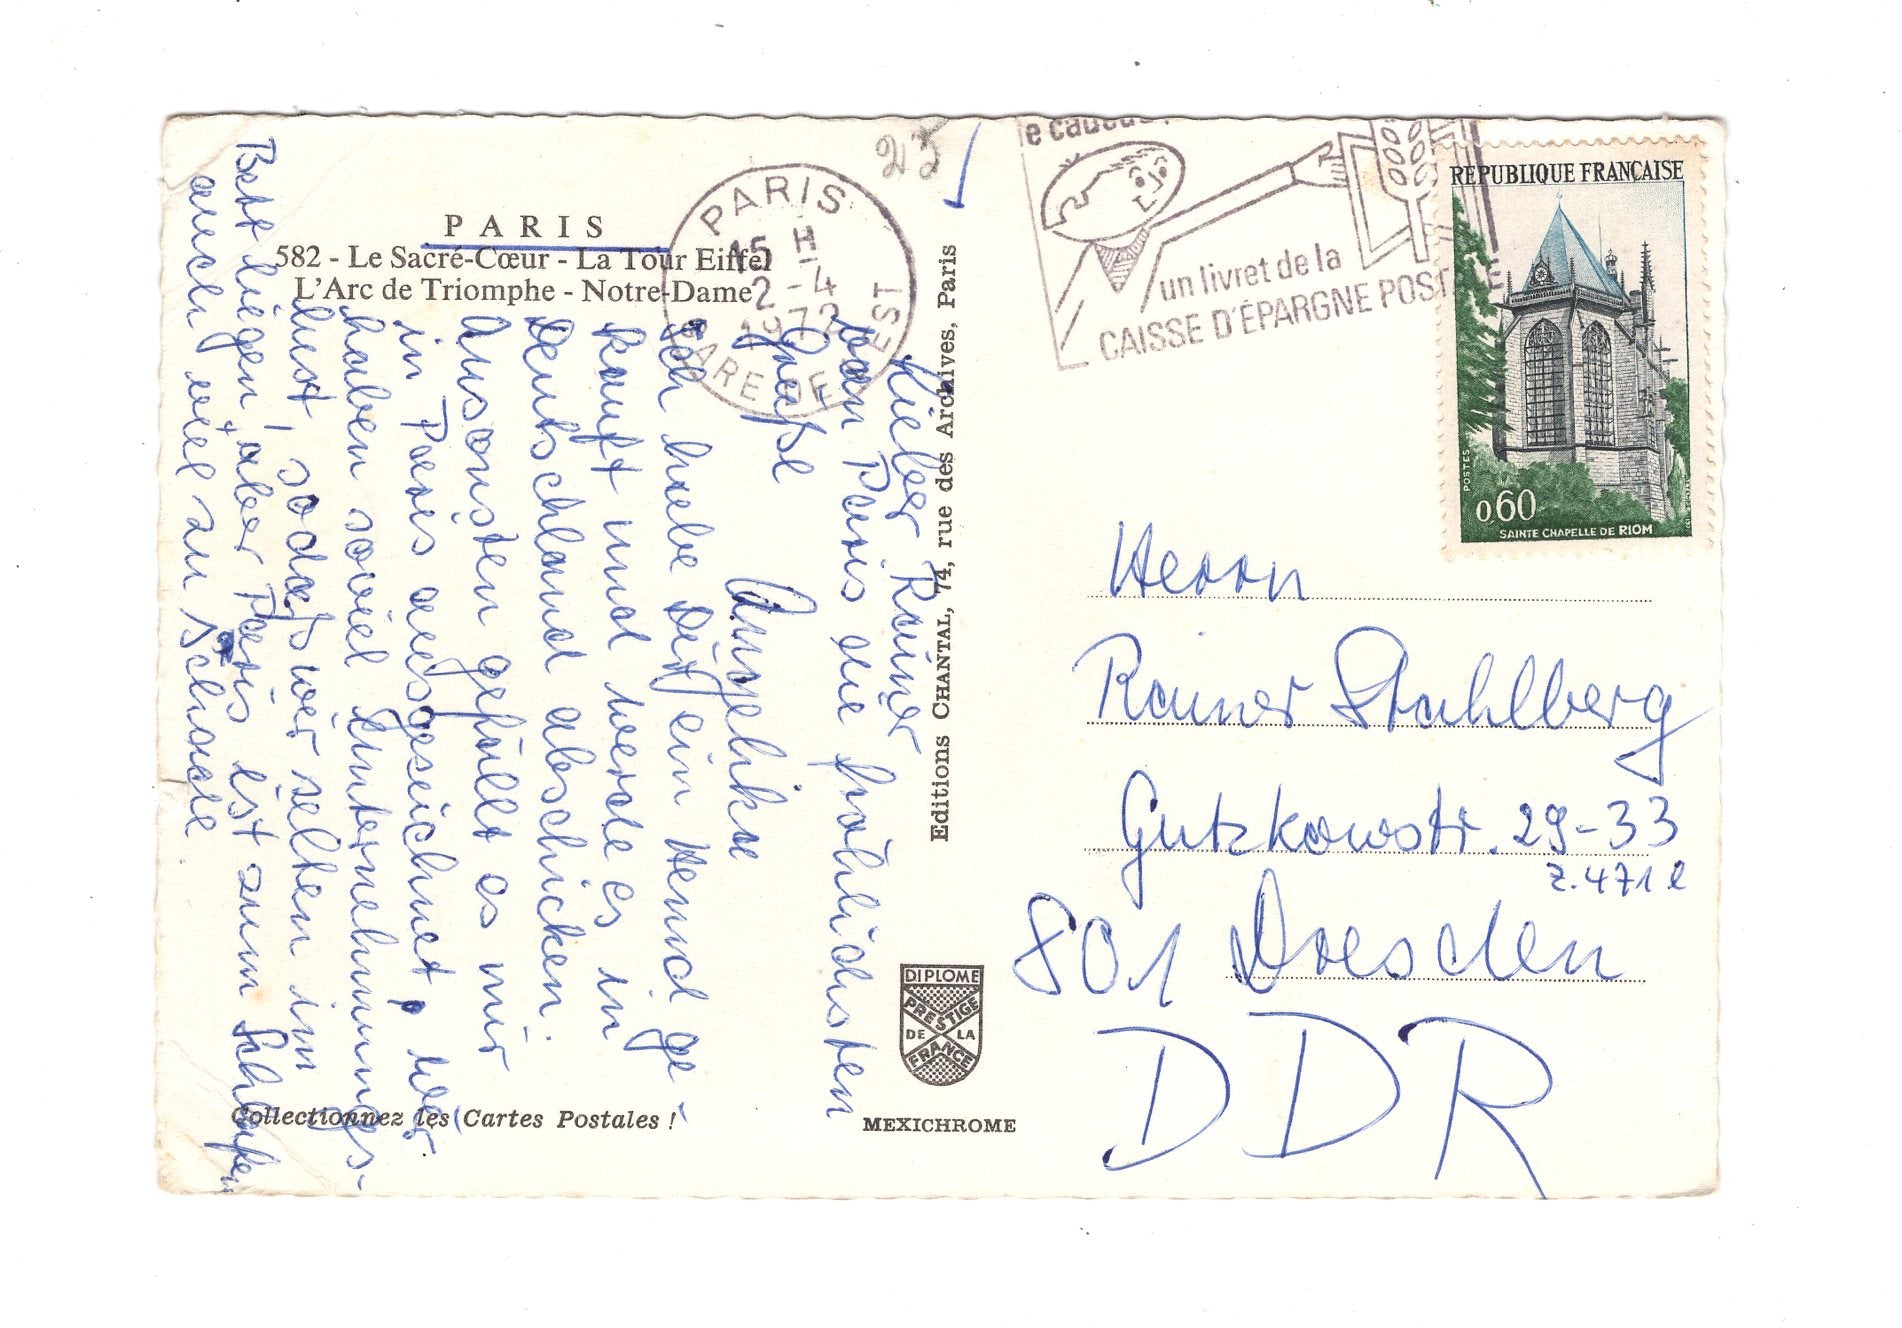 PARIS
582 - Le Sacré-Cœur - La Tour Eiffel
L'Arc de Triomphe - Notre-Dame
25
PARIS
15 H
2 - 4
1972
GARE DE EST
un livret de la
CAISSE D'ÉPARGNE POSTALE
REPUBLIQUE FRANÇAISE
POSTES
0,60
SAINTE CHAPELLE DE RIOM
Lieber Rainer
von Paris die fröhlichsten
Grüße
Angelika
Ich habe Dir ein Hemd ge-
kauft und werde es in
Deutschland abschicken.
Ansonsten gefällt es mir
in Paris ausgezeichnet, wir
haben soviel Unternehmungs-
lust, sodaß wir selten im
Bett liegen, aber Paris ist zum Schlafen
auch viel zu schade.
Editions CHANTAL, 74, rue des Archives, Paris
Herrn
Rainer Stahlberg
Gutzkowstr. 29-33
Z. 471 l
801 Dresden
DDR
DIPLOME
PRESTIGE
DE LA
FRANCE
Collectionnez les Cartes Postales !
MEXICHROME